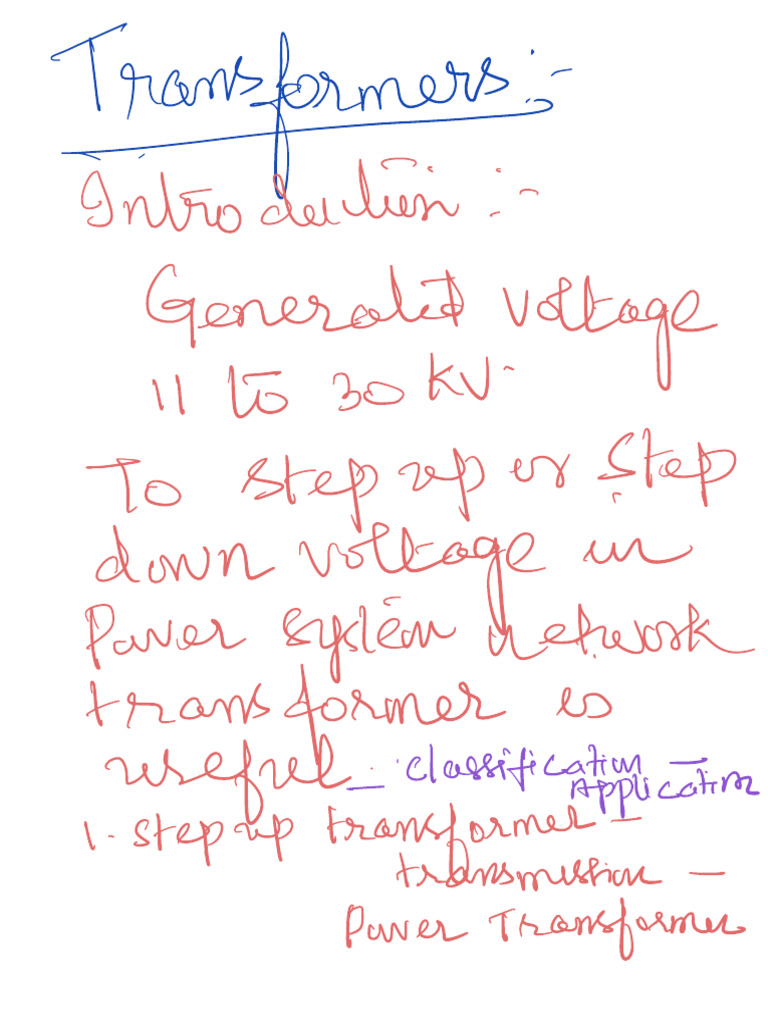 Transformers :-
Introduction :-
Generated voltage
11 to 30 kV.
To step up or step
down voltage in
Power system network
transformer is
useful - classification -
Application
1. step up transformer -
transmission -
Power Transformer